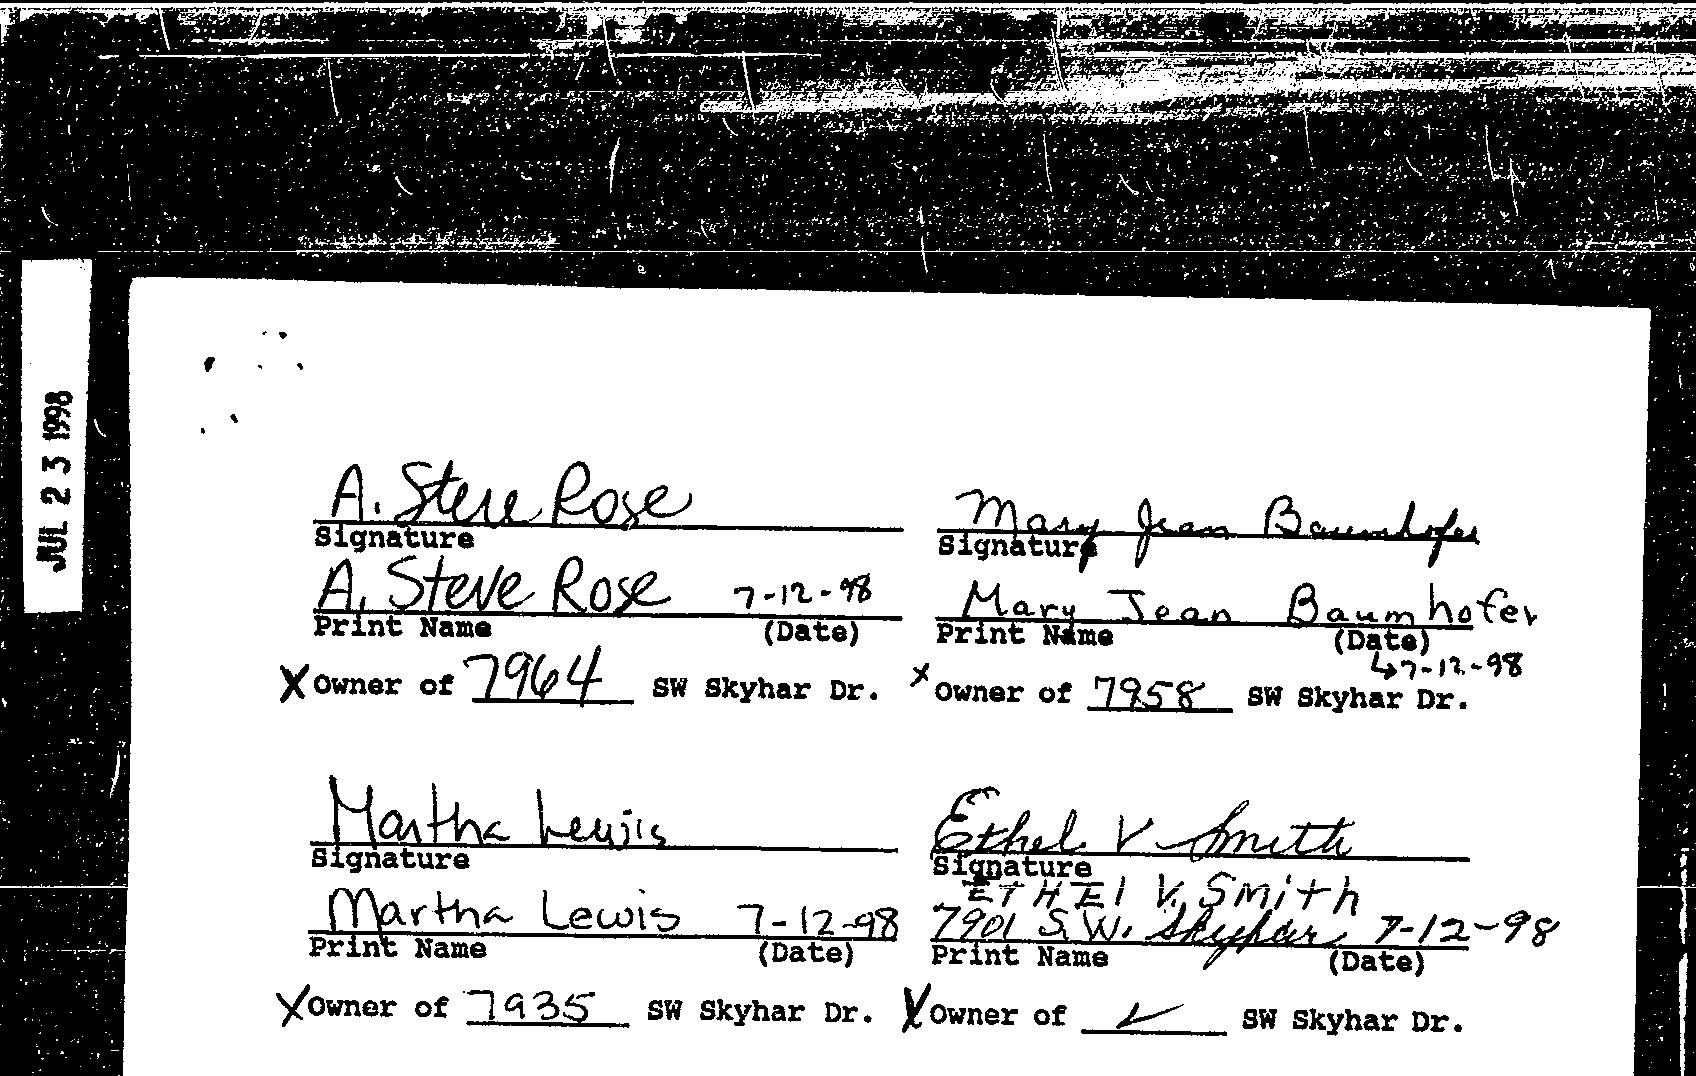 JUL 23 1998
A. Steve Rose
Signature
A. Steve Rose 7-12-98
Print Name (Date)
X Owner of 7964 SW Skyhar Dr.
Mary Jean Baumhofer
Signature
Mary Jean Baumhofer
Print Name (Date)
↳7-12-98
X Owner of 7958 SW Skyhar Dr.
Martha Lewis
Signature
Martha Lewis 7-12-98
Print Name (Date)
X Owner of 7935 SW Skyhar Dr.
Ethel V Smith
Signature
ETHEl V. Smith
7901 S.W. Skyhar 7-12-98
Print Name (Date)
X Owner of ✓ SW Skyhar Dr.